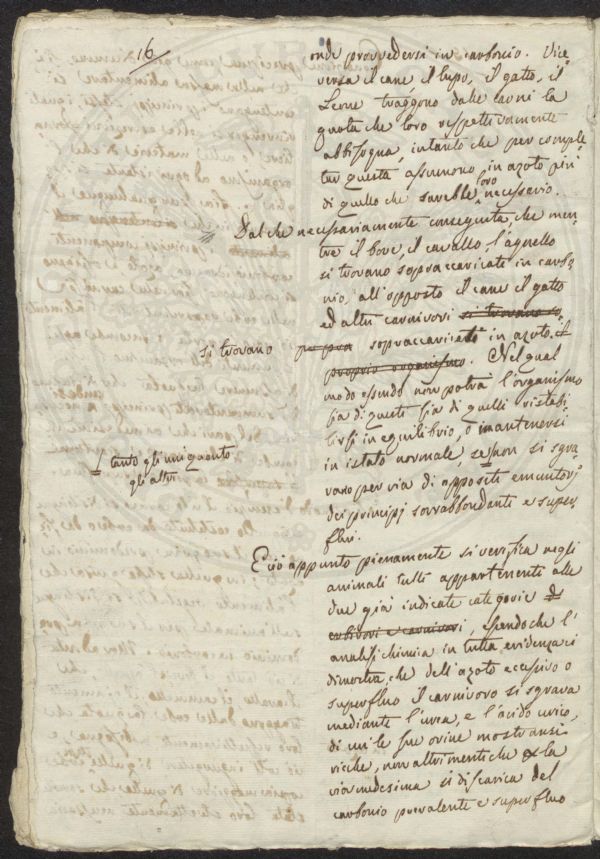 16
onde provvedersi in carbonio. Vice
versa il cane il lupo, il gatto, il
Leone traggono dalle carni la
quota che loro rispettivamente
abbisogna, intanto che per comple
tar questa assumono in azoto più
di quello che sarebbe loro necessario.
Dal che necessariamente conseguita, che men
tre il bove, il cavallo, l'agnello
si trovano sopraccaricati in carbo
nio, all'opposto il cane il gatto
ed altri carnivori si trovano so
si trovano sopraccaricati in azoto. il
proprio organismo. Nel qual
modo essendo non potrà l'organismo
sia di questi sia di quelli ristabi
lirsi in equilibrio, o mantenersi
in istato normale, se non si sgra
tanto gli uni quanto
gli altri
vano per via di appositi emuntorj
dei principj sovrabbondanti e super
flui.
E ciò appunto pienamente si verifica negli
animali tutti appartenenti alle
due già indicate categorie di
erbivori e carnivori, essendo che l'
analisi chimica in tutta evidenza ci
dimostra, che dell'azoto eccessivo o
superfluo il carnivoro si sgrava
mediante l'urea, e l'acido urico,
di cui le sue orine mostransi
ricche, non altrimenti che la
via medesima si discarica del
carbonio prevalente e superfluo